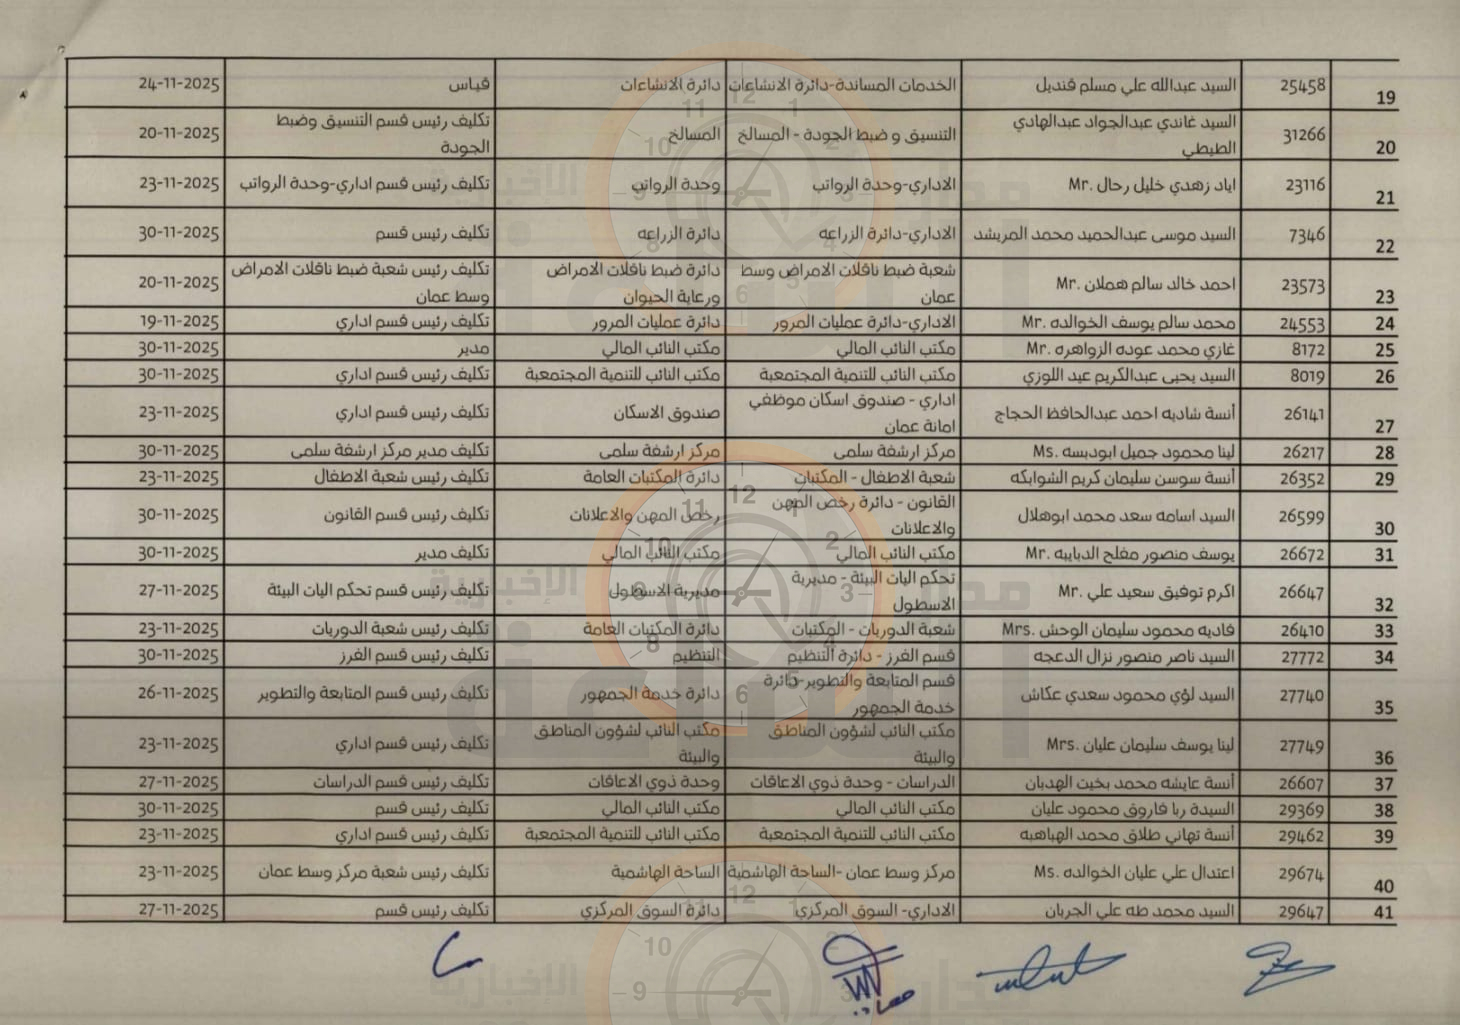 19 25458 السيد عبدالله علي مسلم قنديل الخدمات المساندة-دائرة الانشاءات دائرة الانشاءات قياس 24-11-2025
20 31266 السيد غاندي عبدالجواد عبدالهادي الطيطي التنسيق و ضبط الجودة - المسالخ المسالخ تكليف رئيس قسم التنسيق وضبط الجودة 20-11-2025
21 23116 اياد زهدي خليل رحال .Mr الاداري-وحدة الرواتب وحدة الرواتب تكليف رئيس قسم اداري-وحدة الرواتب 23-11-2025
22 7346 السيد موسى عبدالحميد محمد المريشد الاداري-دائرة الزراعه دائرة الزراعه تكليف رئيس قسم 30-11-2025
23 23573 احمد خالد سالم هملان .Mr شعبة ضبط ناقلات الامراض وسط عمان دائرة ضبط ناقلات الامراض ورعاية الحيوان تكليف رئيس شعبة ضبط ناقلات الامراض وسط عمان 20-11-2025
24 24553 محمد سالم يوسف الخوالده .Mr الاداري-دائرة عمليات المرور دائرة عمليات المرور تكليف رئيس قسم اداري 19-11-2025
25 8172 غازي محمد عوده الزواهره .Mr مكتب النائب المالي مكتب النائب المالي مدير 30-11-2025
26 8019 السيد يحيى عبدالكريم عيد اللوزي مكتب النائب للتنمية المجتمعية مكتب النائب للتنمية المجتمعية تكليف رئيس قسم اداري 30-11-2025
27 26141 أنسة شاديه احمد عبدالحافظ الحجاج اداري - صندوق اسكان موظفي امانة عمان صندوق الاسكان تكليف رئيس قسم اداري 23-11-2025
28 26217 لينا محمود جميل ابودبسه .Ms مركز ارشفة سلمى مركز ارشفة سلمى تكليف مدير مركز ارشفة سلمى 30-11-2025
29 26352 أنسة سوسن سليمان كريم الشوابكه شعبة الاطفال - المكتبات دائرة المكتبات العامة تكليف رئيس شعبة الاطفال 23-11-2025
30 26599 السيد اسامه سعد محمد ابوهلال القانون - دائرة رخص المهن والاعلانات رخص المهن والاعلانات تكليف رئيس قسم القانون 30-11-2025
31 26672 يوسف منصور مفلح الدبايبه .Mr مكتب النائب المالي مكتب النائب المالي تكليف مدير 30-11-2025
32 26647 اكرم توفيق سعيد علي .Mr تحكم اليات البيئة - مديرية الاسطول مديرية الاسطول تكليف رئيس قسم تحكم اليات البيئة 27-11-2025
33 26410 فاديه محمود سليمان الوحش .Mrs شعبة الدوريات - المكتبات دائرة المكتبات العامة تكليف رئيس شعبة الدوريات 23-11-2025
34 27772 السيد ناصر منصور نزال الدعجه قسم الفرز - دائرة التنظيم التنظيم تكليف رئيس قسم الفرز 30-11-2025
35 27740 السيد لؤي محمود سعدي عكاش قسم المتابعة والتطوير-دائرة خدمة الجمهور دائرة خدمة الجمهور تكليف رئيس قسم المتابعة والتطوير 26-11-2025
36 27749 لينا يوسف سليمان عليان .Mrs مكتب النائب لشؤون المناطق والبيئة مكتب النائب لشؤون المناطق والبيئة تكليف رئيس قسم اداري 23-11-2025
37 26607 أنسة عايشه محمد بخيت الهدبان الدراسات - وحدة ذوي الاعاقات وحدة ذوي الاعاقات تكليف رئيس قسم الدراسات 27-11-2025
38 29369 السيدة ربا فاروق محمود عليان مكتب النائب المالي مكتب النائب المالي تكليف رئيس قسم 30-11-2025
39 29462 أنسة تهاني طلاق محمد الهباهبه مكتب النائب للتنمية المجتمعية مكتب النائب للتنمية المجتمعية تكليف رئيس قسم اداري 23-11-2025
40 29674 اعتدال علي عليان الخوالده .Ms مركز وسط عمان -الساحة الهاشمية الساحة الهاشمية تكليف رئيس شعبة مركز وسط عمان 23-11-2025
41 29647 السيد محمد طه علي الجربان الاداري- السوق المركزي دائرة السوق المركزي تكليف رئيس قسم 27-11-2025
مدار الساعة الإخبارية